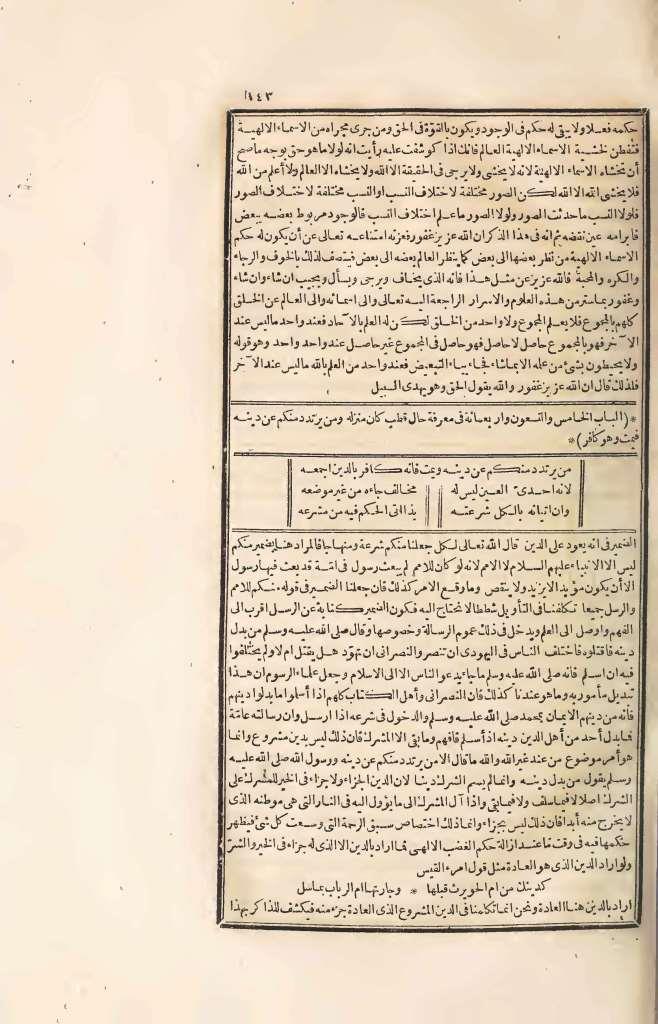 ١٤٣
حكمه فعلا ولا يبقى له حكم فى الوجود ويكون بالقوّة فى الحق ومن جرى مجراه من الاسماء الالهية
فتفطن لخشية الاسماء الالهية العالم فانك اذا كوشفت عليه رأيت انه لولا ما هو حق بوجه ما صح
أن تخشاه الاسماء الالهية لانه لا يخشى ولا يرجى فى الحقيقة الا الله ولا يخشاه الا العالم ولا أعلم من الله
فلا يخشى الله الا الله لكن الصور مختلفة لاختلاف النسب او النسب مختلفة لاختلاف الصور
فلولا النسب ما حدثت الصور ولولا الصور ما علم اختلاف النسب فالوجود مربوط بعضه ببعض
فابرامه عين نقضه ثم انه فى هذا الذكر ان الله عزيز غفور فعزته امتناعه تعالى عن أن يكون له حكم
الاسماء الالهية من نظر بعضها الى بعض كما ينظر العالم بعضه الى بعض فيتصف لذلك بالخوف والرجاء
والكره والمحبة فالله عزيز عن مثل هذا فانه الذى يخاف ويرجى ويسأل ويجيب ان شاء وان شاء
وغفور بما ستر من هذه العلوم والاسرار الراجعة اليه تعالى والى اسمائه والى العالم عن الخلق
كلهم بالمجموع فلا يعلم المجموع ولا واحد من الخلق لكن له العلم بالآحاد فعند واحد ما ليس عند
الآخر فهو بالمجموع حاصل لا حاصل فهو حاصل فى المجموع غير حاصل عند واحد واحد وهو قوله
ولا يحيطون بشئ من علمه الا بما شاء فجاء بباء التبعيض فعند واحد من العلم بالله ما ليس عند الآخر
فلذلك قال ان الله عزيز غفور والله يقول الحق وهو يهدى السبيل
*(الباب الخامس والتسعون واربعمائة فى معرفة حال قطب كان منزله ومن يرتدد منكم عن دينه
فيمت وهو كافر)*
من يرتدد منكم عن دينه ويمت فانه كافر بالدين اجمعه
لانه احدىّ العين ليس له مخالف جاءه من غير موضعه
وان اتيانه بالكل شرعته بذا اتى الحكم فيه من مشرعه
الضمير فى انه يعود على الدين قال الله تعالى لكل جعلنا منكم شرعة ومنهاجا فالمراد هنا بضمير منكم
ليس الا الانبياء عليهم السلام لا الامم لانه لو كان للامم لم يبعث رسول فى امّة قد بعث فيها رسول
الا أن يكون مؤيدا لا يزيد ولا ينقص وما وقع الامر كذلك فان جعلنا الضمير فى قوله منكم للامم
والرسل جميعا تكلفنا فى التأويل شططا لا نحتاج اليه فكون الضمير كناية عن الرسل اقرب الى
الفهم واوصل الى العلم ويدخل فى ذلك عموم الرسالة وخصوصها وقال صلى الله عليه وسلم من بدل
دينه فاقتلوه فاختلف الناس فى اليهودى ان تنصر والنصرانى ان تهوّد هل يقتل ام لا ولم يختلفوا
فيه ان اسلم فانه صلى الله عليه وسلم ما جاء يدعو الناس الا الى الاسلام وجعل علماء الرسوم ان هذا
تبديل مأمور به وما هو عندنا كذلك فان النصرانى وأهل الكتاب كلهم اذا أسلموا ما بدلوا دينهم
فانه من دينهم الايمان بمحمد صلى الله عليه وسلم والدخول فى شرعه اذا ارسل وان رسالته عامّة
فما بدل أحد من أهل الدين دينه اذ أسلم فافهم وما بقى الا المشرك فان ذلك ليس بدين مشروع وانما
هو أمر موضوع من عند غير الله والله ما قال الا من يرتدد منكم عن دينه ورسول الله صلى الله عليه
وسلم يقول من بدل دينه وانما لم يسم الشرك دينا لان الدين الجزاء ولا جزاء فى الخير للمشرك على
الشرك اصلا لا فيما سلف ولا فيما بقى واذا آل المشرك الى ما يؤول اليه فى النار التى هى موطنه الذى
لا يخرج منه أبدا فان ذلك ليس بجزاء وانما ذلك اختصاص سبق الرحمة التى وسعت كل شئ فيظهر
حكمها فيه فى وقت ما عند ازالة حكم الغضب الالهى فما اراد بالدين الا الذى له جزاء فى الخير والشرّ
ولو اراد الدين الذى هو العادة مثل قول امرء القيس
كدينك من ام الحويرث قبلها * وجارتها ام الرباب بماسل
اراد بالدين هنا العادة ونحن انما تكلمنا فى الدين المشروع الذى العادة جزء منه فيكشف للذاكر بهذا